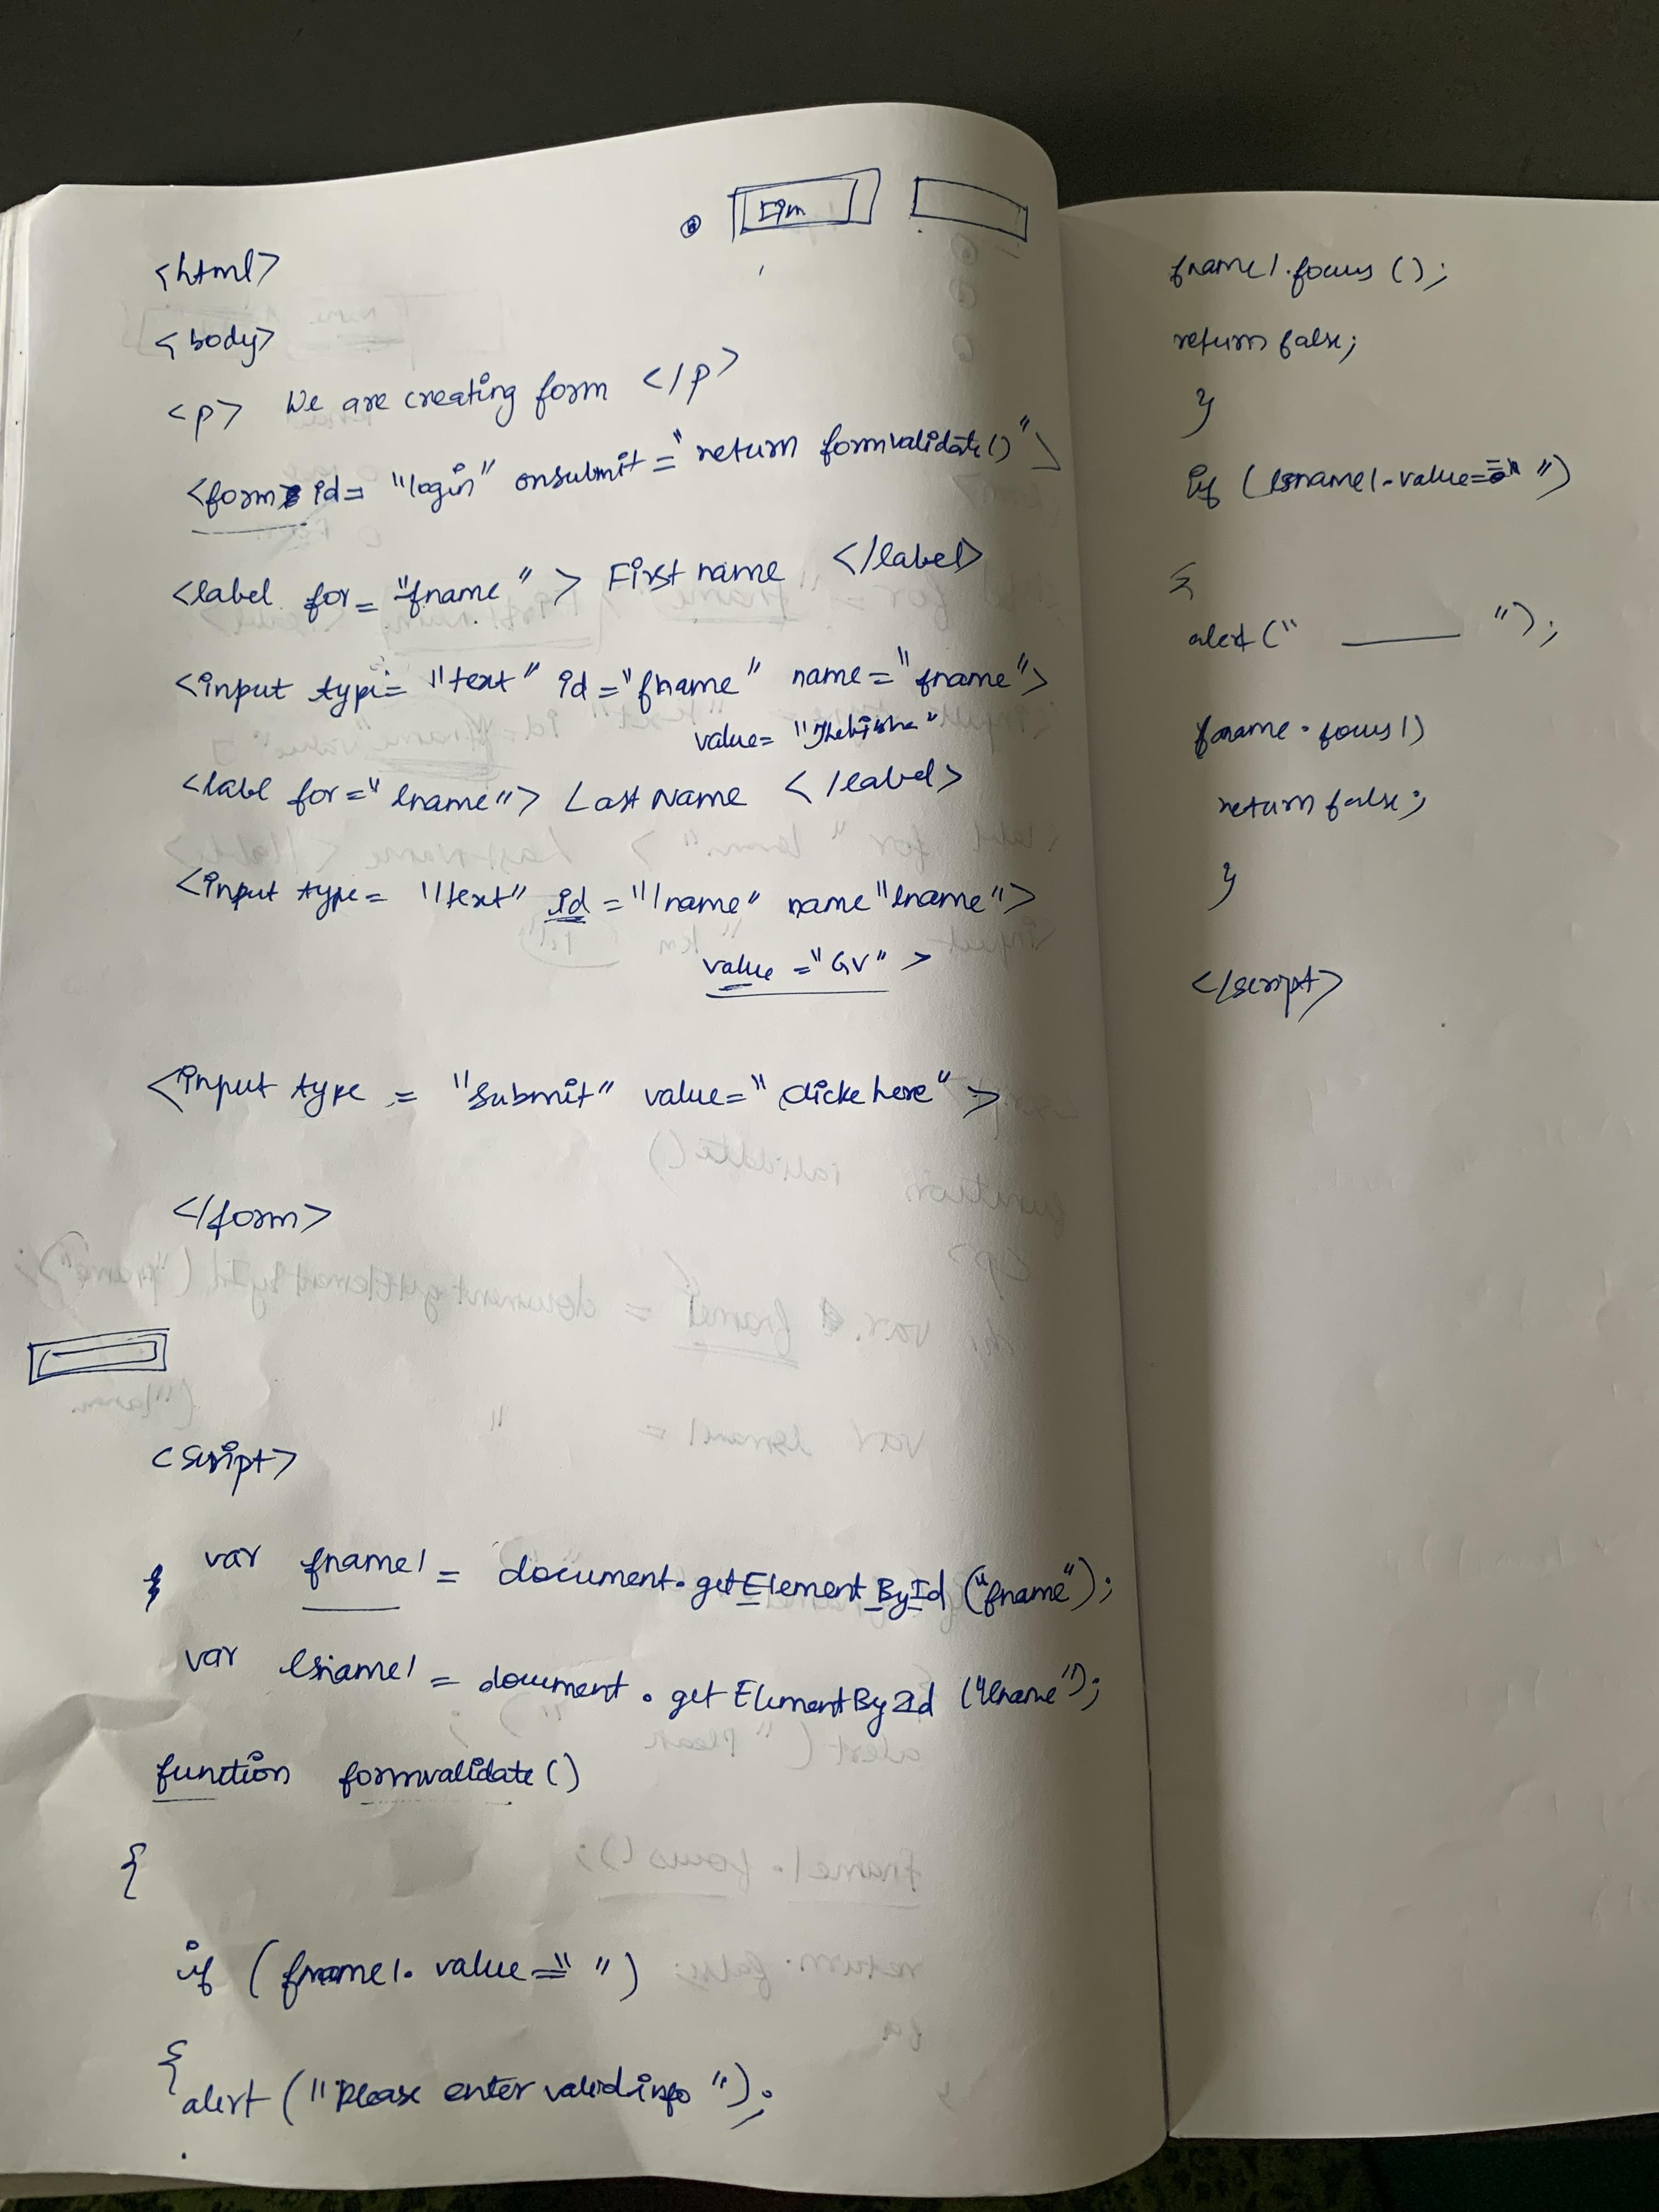 Fqm
<html>
<body>
<p> We are creating form </p>
<form id= "login" onsubmit="return formvalidate()">
<label for= "fname" > First name </label>
<input type= "text" id ="fname" name = "fname">
value=
<labl for=" lname"> Last Name </label>
<input type= "text" id = "lname" name "lname">
value ="GV" >
<input type = "submit" value=" clicke here" >
</form>
<script>
var fname1 = document.getElementById ("fname");
var lsname1 = document.getElementById ("lname");
function formvalidate()
{
if (fname1. value=" ")
{
alert ("please enter valid info ");
fname1.focus ();
return false;
}
if (lsname1.value= ")
{
alert (" ___ ");
fname.focus()
return false;
}
</script>